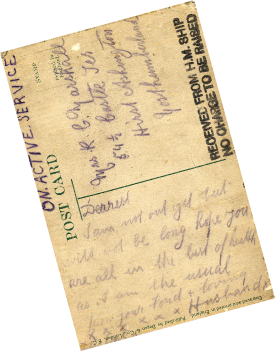 ON ACTIVE SERVICE
POST CARD
STAMP
RECEIVED FROM H.M. SHIP
NO CHARGE TO BE RAISED
Mrs R. G. Marshall
64½ Castle Ter
Hirst Ashington
Northumberland
Dearest
I am not out yet but
will not be long. hope you
are all in the best of health
as it am the usual
from your fond & loving
x x x x x x Husband x